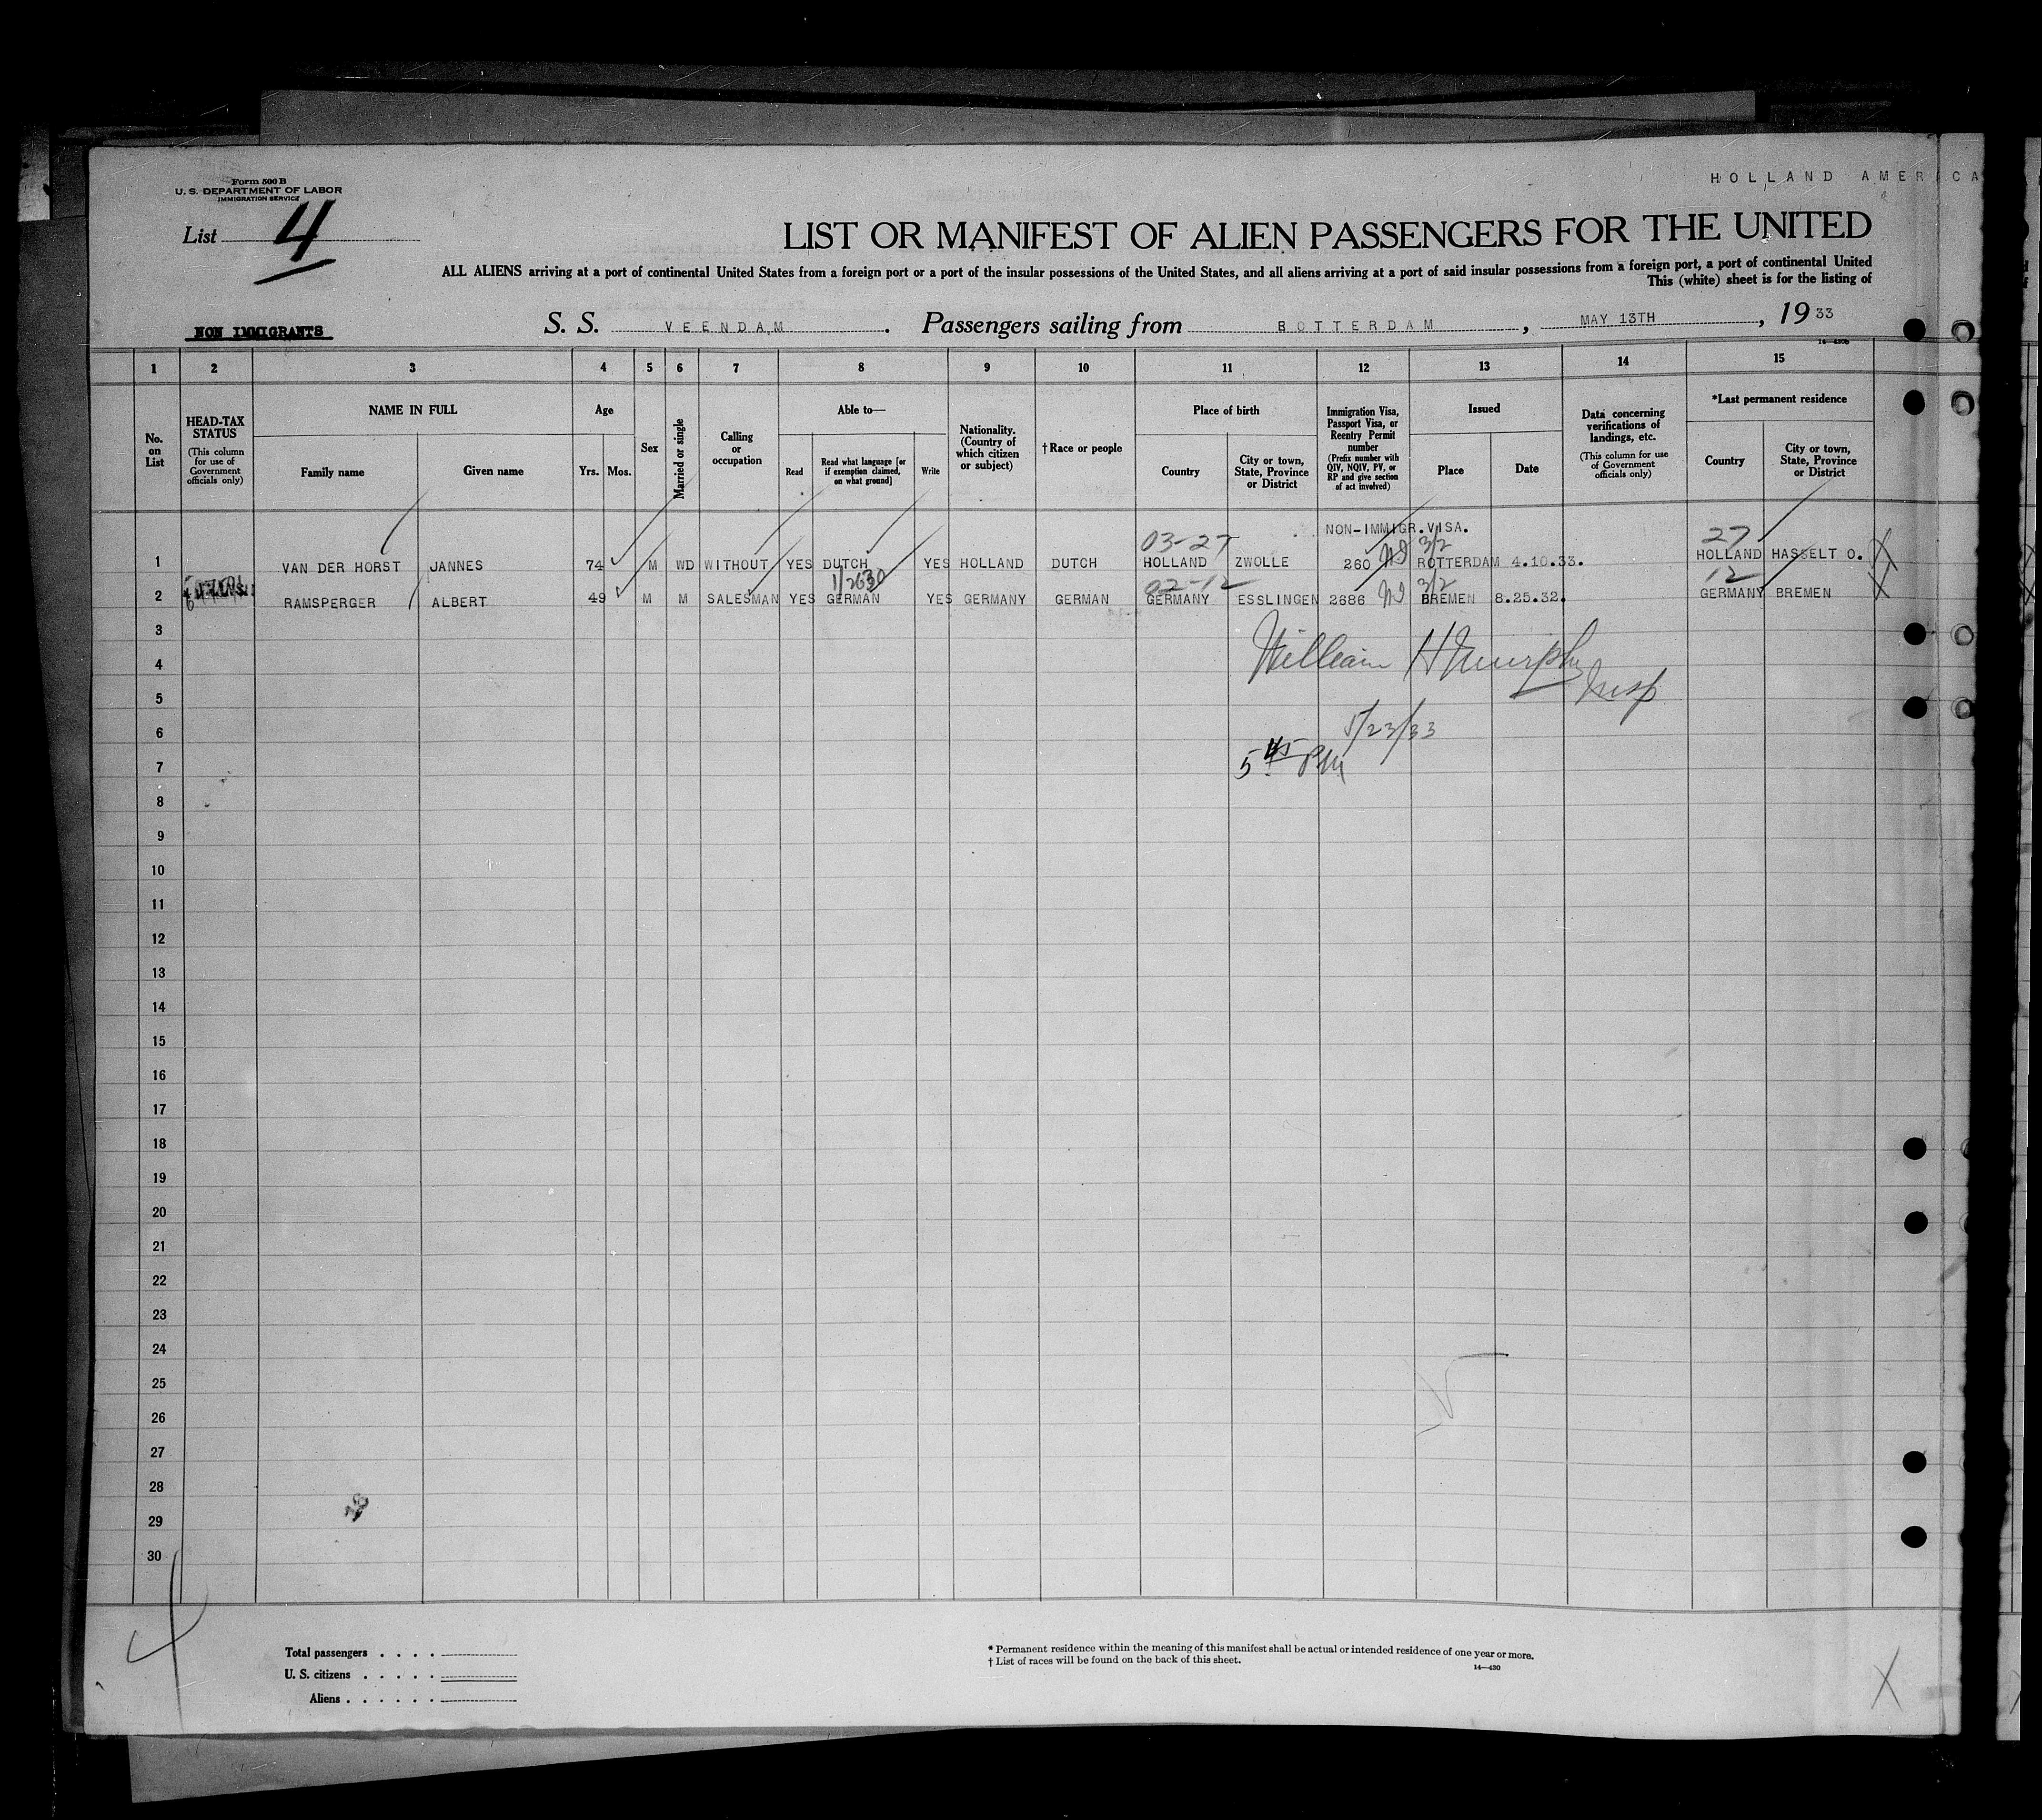 Form 500 B
U. S. DEPARTMENT OF LABOR
IMMIGRATION SERVICE
HOLLAND AMERICA
List 4
LIST OR MANIFEST OF ALIEN PASSENGERS FOR THE UNITED
ALL ALIENS arriving at a port of continental United States from a foreign port or a port of the insular possessions of the United States, and all aliens arriving at a port of said insular possessions from a foreign port, a port of continental United
This (white) sheet is for the listing of
NON IMMIGRANTS
S. S. VEENDAM. Passengers sailing from ROTTERDAM, MAY 13TH, 1933
1 2 3 4 5 6 7 8 9 10 11 12 13 14 15
No. on List
HEAD-TAX STATUS (This column for use of Government officials only)
NAME IN FULL
Family name
Given name
Age
Yrs. Mos.
Sex
Married or single
Calling or occupation
Able to—
Read
Read what language [or if exemption claimed, on what ground]
Write
Nationality. (Country of which citizen or subject)
† Race or people
Place of birth
Country
City or town, State, Province or District
Immigration Visa, Passport Visa, or Reentry Permit number (Prefix number with QIV, NQIV, PV, or RP and give section of act involved)
Issued
Place
Date
Data concerning verifications of landings, etc. (This column for use of Government officials only)
*Last permanent residence
Country
City or town, State, Province or District
NON-IMMIGR.VISA.
03-27 3/2 27
1 VAN DER HORST JANNES 74 M WD WITHOUT YES DUTCH YES HOLLAND DUTCH HOLLAND ZWOLLE 260 ROTTERDAM 4.10.33. HOLLAND HASSELT O.
02-12 3/2 12
2 RAMSPERGER ALBERT 49 M M SALESMAN YES GERMAN YES GERMANY GERMAN GERMANY ESSLINGEN 2686 BREMEN 8.25.32. GERMANY BREMEN
3
William H Murphy
4
Insp
5
6 5/23/33
7 5 45 PM
8
9
10
11
12
13
14
15
16
17
18
19
20
21
22
23
24
25
26
27
28
29
30
Total passengers . . . .
U. S. citizens . . . . .
Aliens . . . . . .
* Permanent residence within the meaning of this manifest shall be actual or intended residence of one year or more.
† List of races will be found on the back of this sheet.
14—430